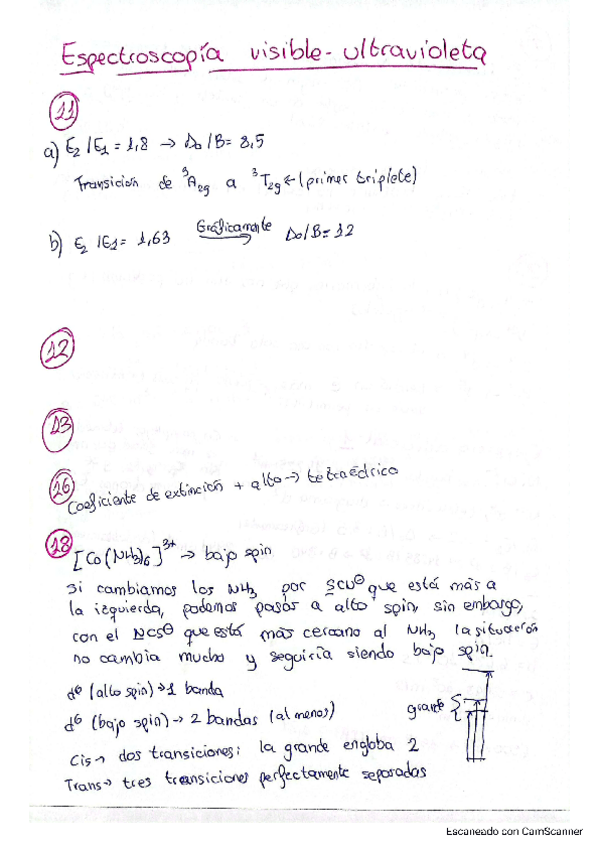 Espectroscopía visible-ultravioleta
11
a) E2/E1 = 1,8 → Δo/B = 8,5
Transición de ³A2g a ³T2g ← (primer triplete)
b) E2/E1 = 1,63 Gráficamente → Δo/B = 12
12
13
26
Coeficiente de extinción + alto → tetraédrico
18
[Co(NH3)6]3+ → bajo spin
Si cambiamos los NH3 por SCN⊖ que está más a
la izquierda, podemos pasar a alto spin, sin embargo,
con el NCS⊖ que está más cercano al NH3 la situación
no cambia mucho y seguiría siendo bajo spin.
d6 (alto spin) → 1 banda
d6 (bajo spin) → 2 bandas (al menos)
grande
Cis → dos transiciones: la grande engloba 2
Trans → tres transiciones perfectamente separadas
Escaneado con CamScanner